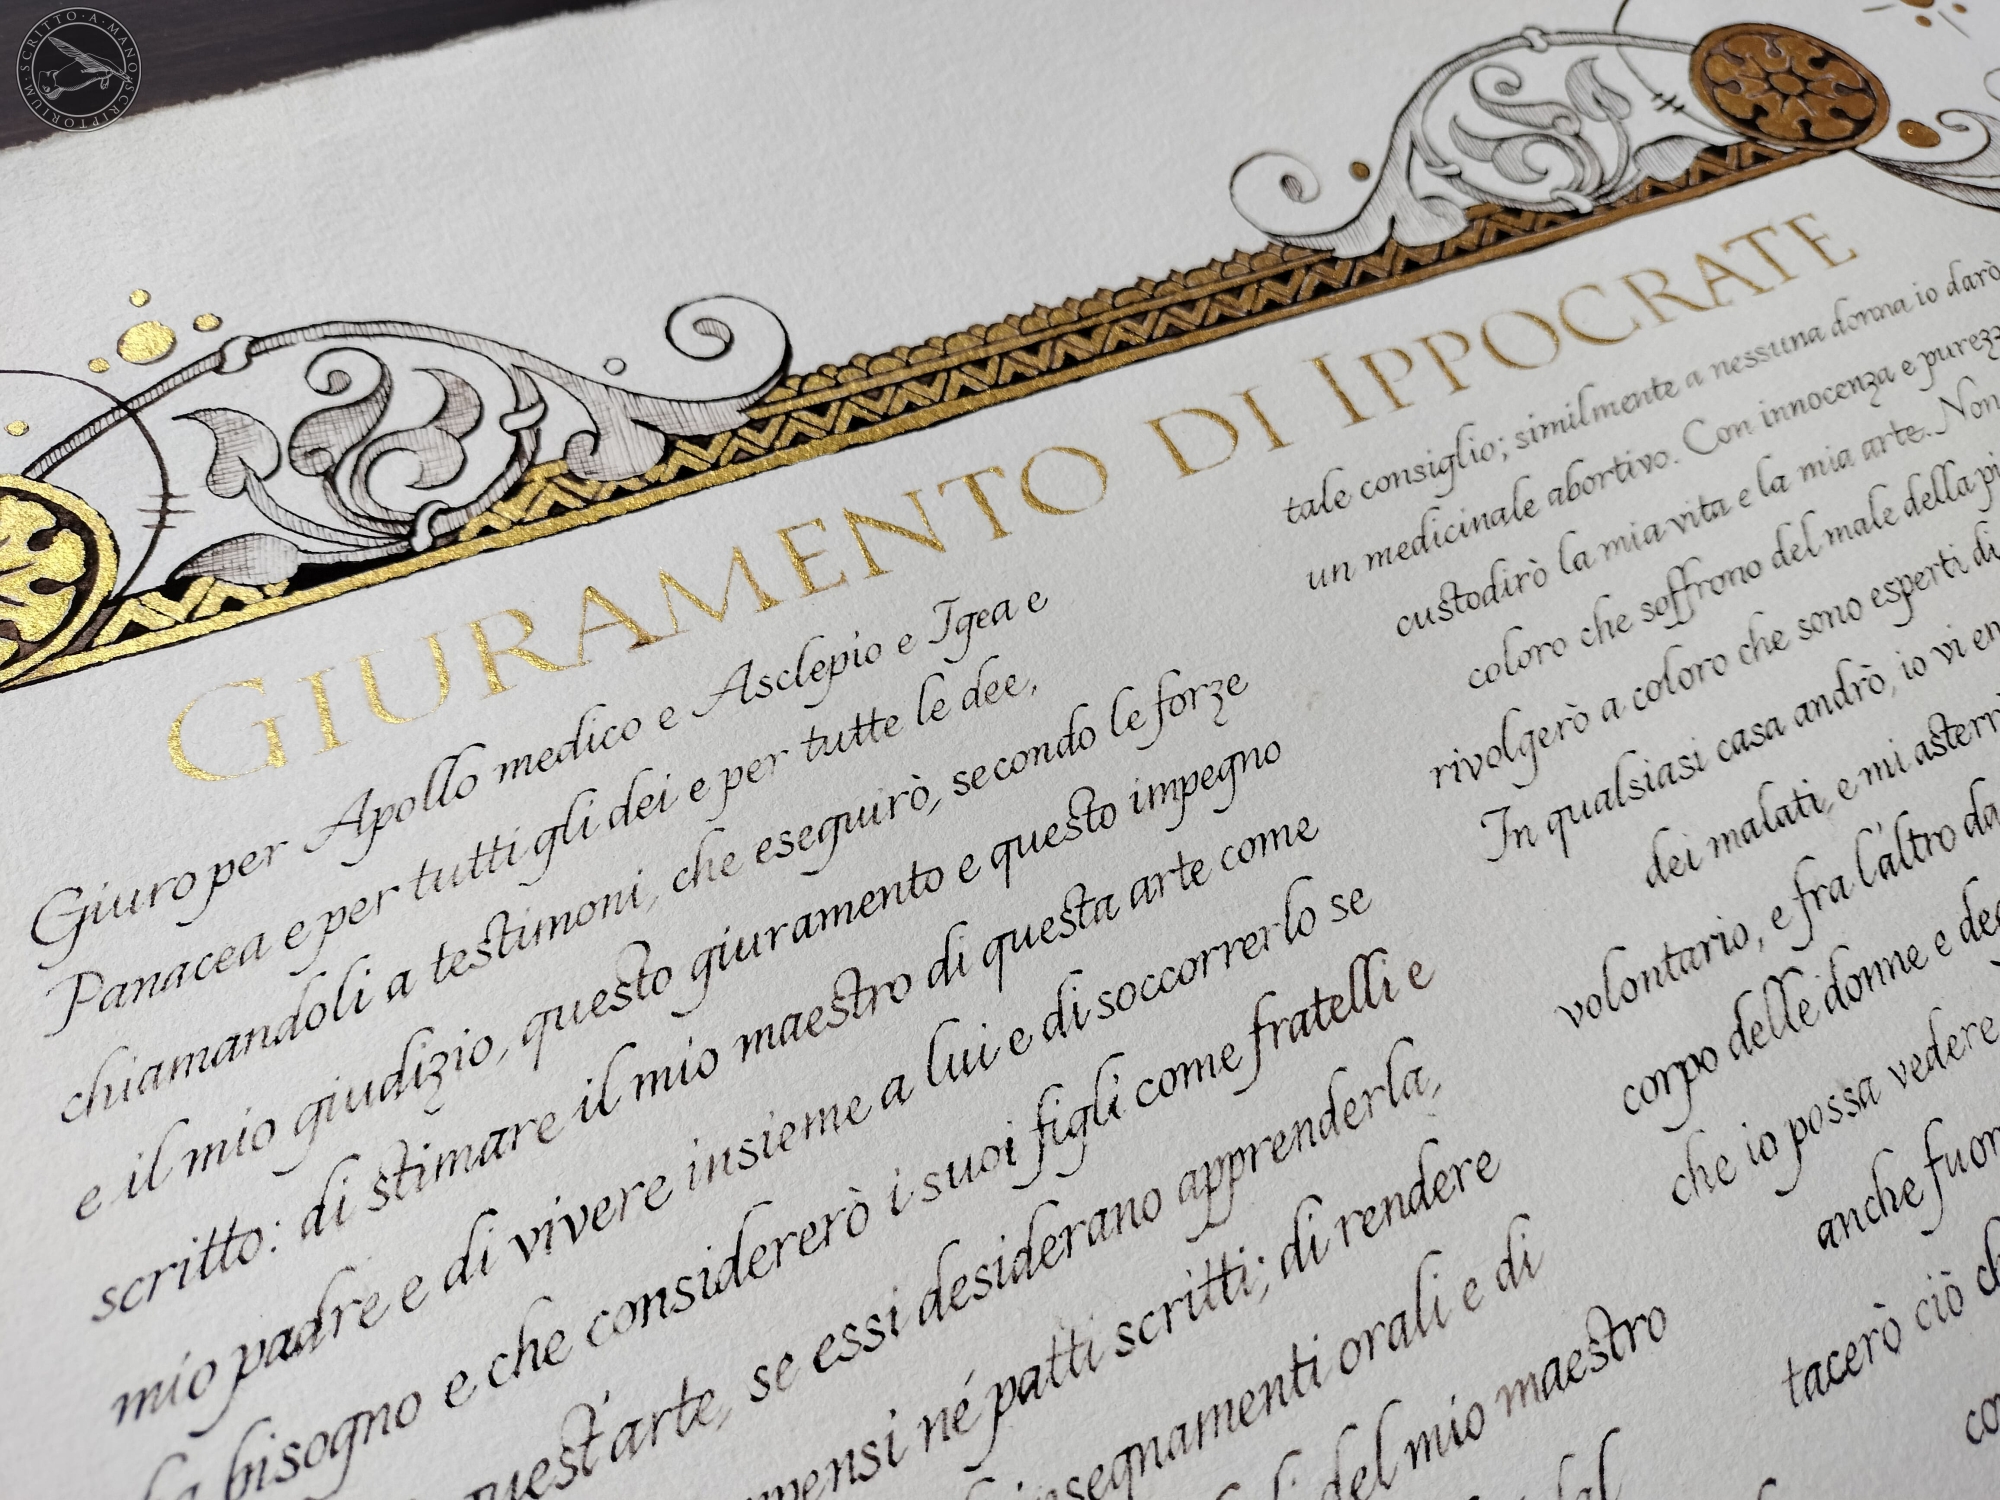 SCRITTO·A·MANO·SCRIPTORIUM
GIURAMENTO DI IPPOCRATE
Giuro per Apollo medico e Asclepio e Igea e
Panacea e per tutti gli dei e per tutte le dee,
chiamandoli a testimoni, che eseguirò, secondo le forze
e il mio giudizio, questo giuramento e questo impegno
scritto: di stimare il mio maestro di questa arte come
mio padre e di vivere insieme a lui e di soccorrerlo se
ha bisogno e che considererò i suoi figli come fratelli e
quest'arte, se essi desiderano apprenderla,
né patti scritti; di rendere
insegnamenti orali e di
del mio maestro
dal
tale consiglio; similmente a nessuna donna io darò
un medicinale abortivo. Con innocenza e
custodirò la mia vita e la mia arte. Non
coloro che soffrono del male della
rivolgerò a coloro che sono esperti di
In qualsiasi casa andrò, io vi
dei malati, e mi
volontario, e fra l'altro
corpo delle donne e
che io possa vedere
anche
tacerò ciò